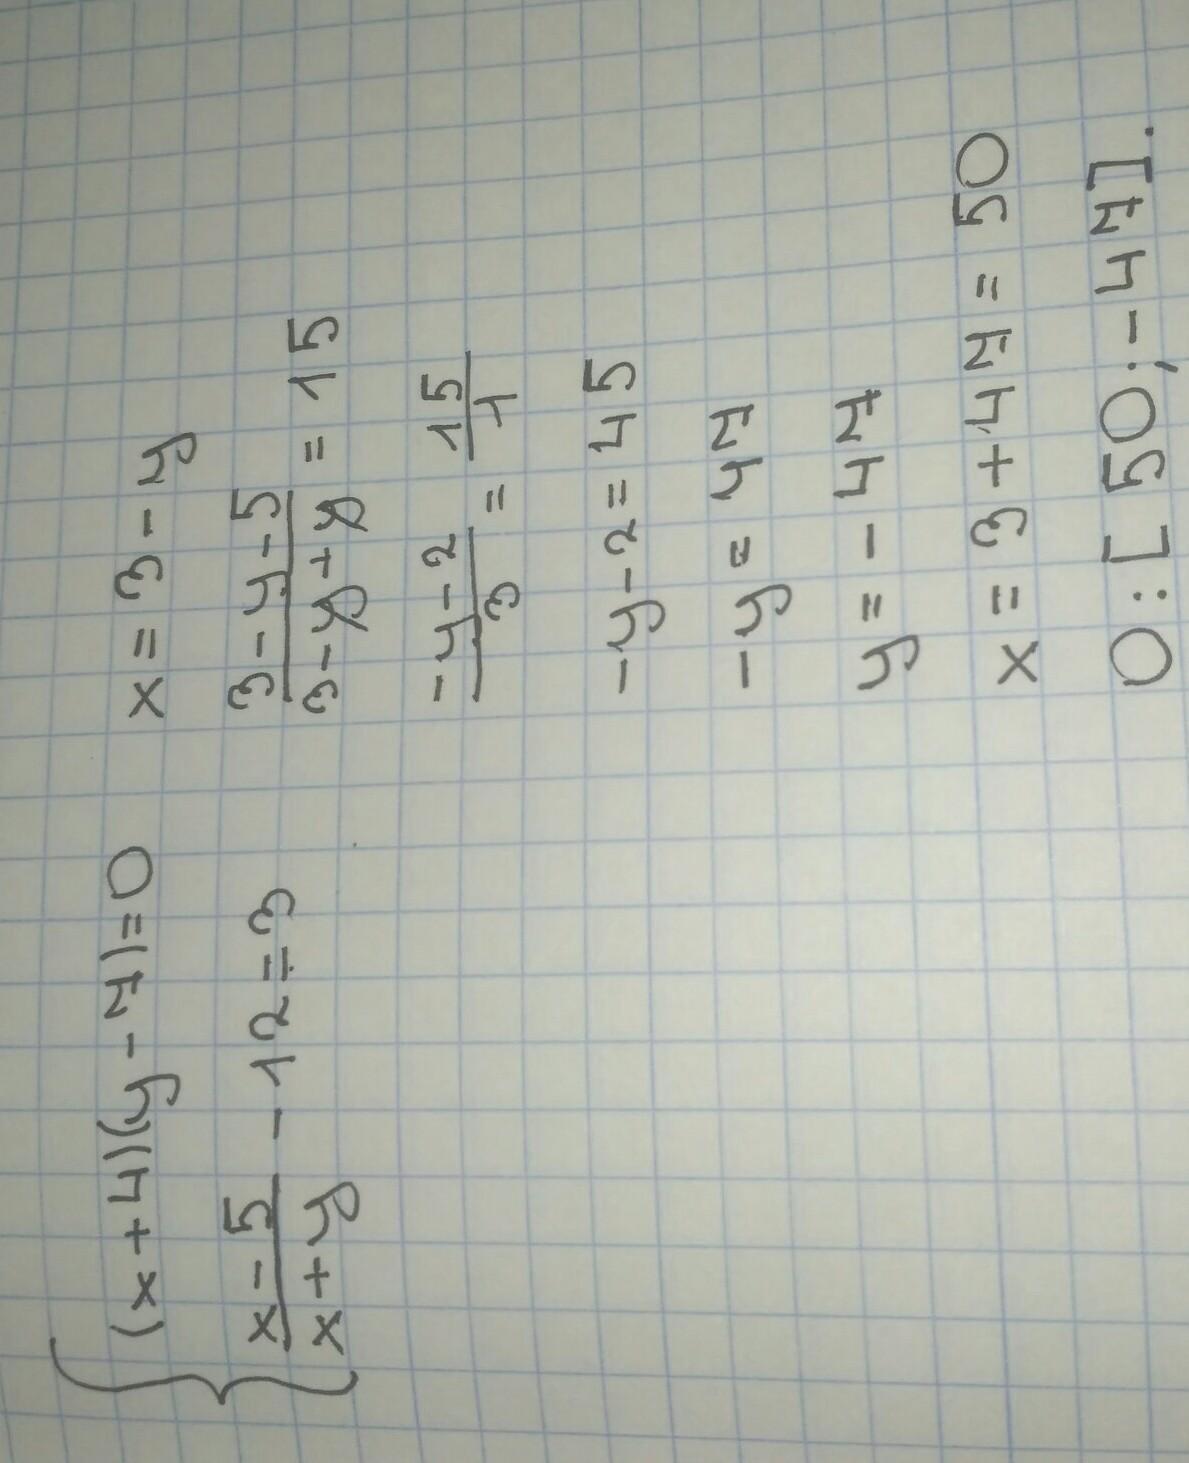 (x+4)(y-7)=0
\frac{x-5}{x+y} - 12 = 3
x = 3 - y
\frac{3-y-5}{3-y+y} = 15
\frac{-y-2}{3} = \frac{15}{1}
-y-2=45
-y = 47
y = -47
x = 3+47 = 50
O: [50;-47].